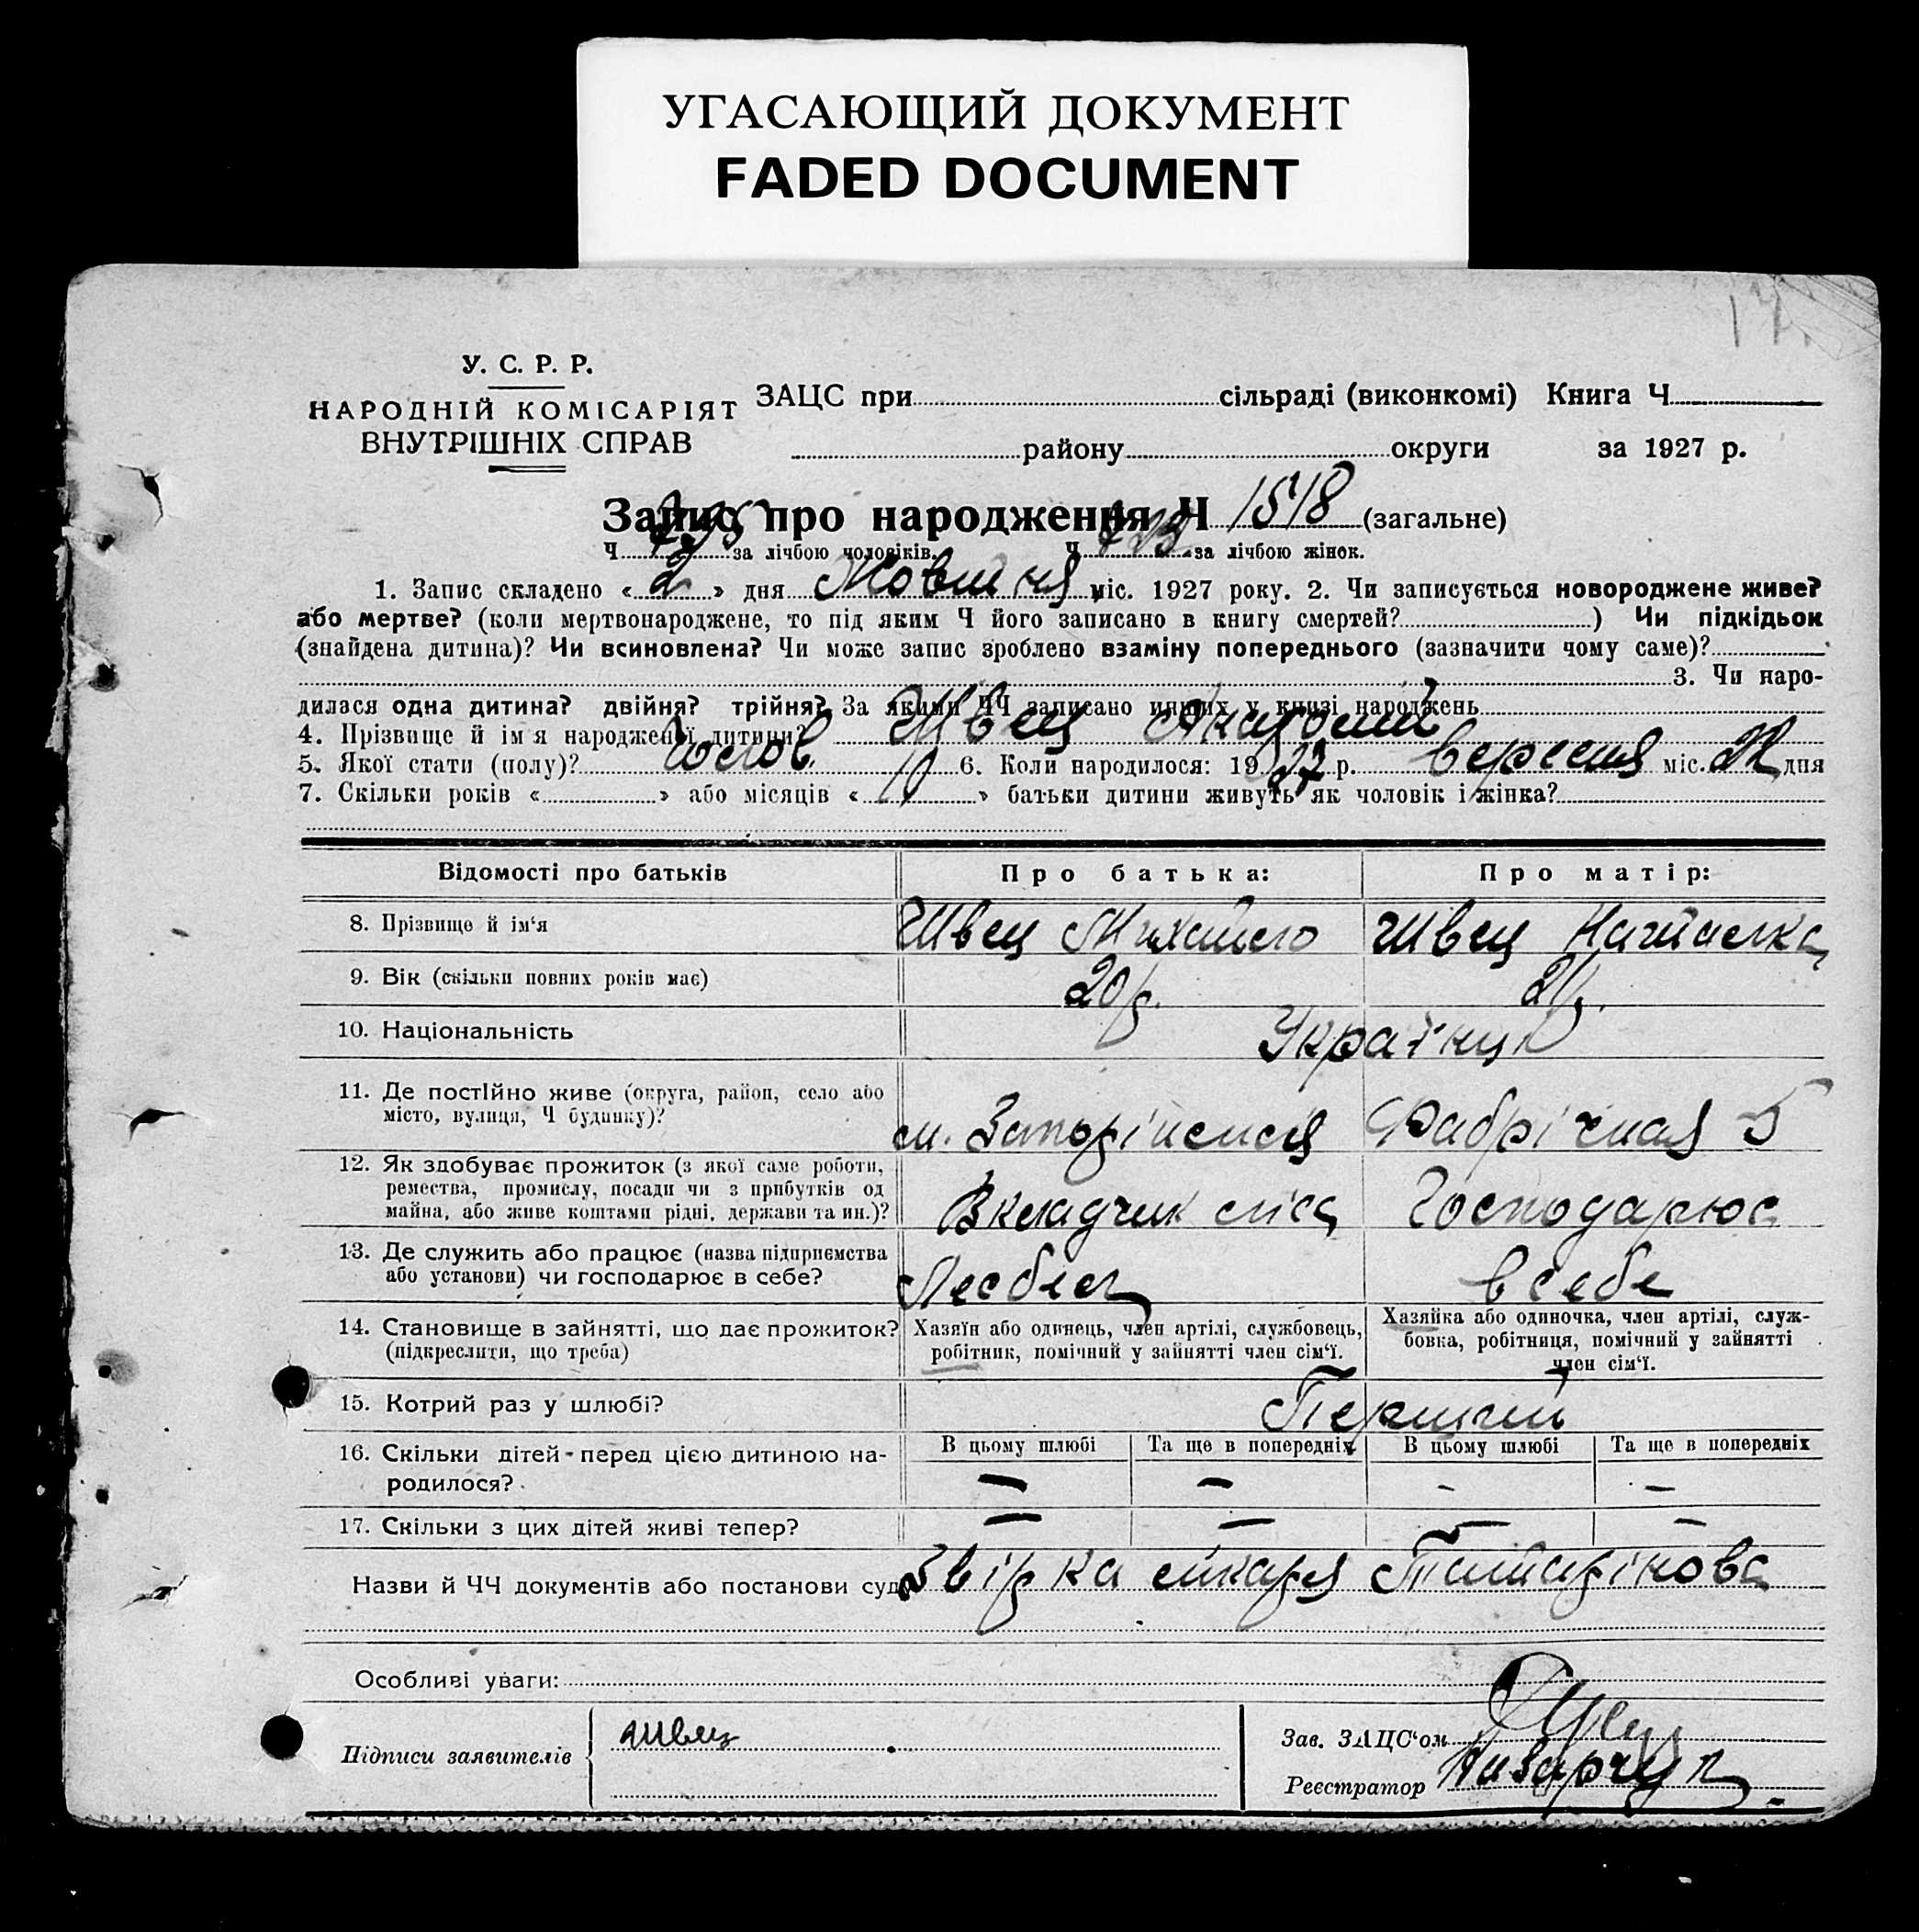 УГАСАЮЩИЙ ДОКУМЕНТ
FADED DOCUMENT
У. С. Р. Р.
НАРОДНІЙ КОМІСАРІЯТ
ВНУТРІШНІХ СПРАВ
ЗАЦС при сільраді (виконкомі) Книга Ч
району округи за 1927 р.
Запис про народження Ч 1518 (загальне)
Ч 795 за лічбою чоловіків. Ч за лічбою жінок.
1. Запис складено « 2 » дня Жовтня міс. 1927 року. 2. Чи записується новороджене живе?
або мертве? (коли мертвонароджене, то під яким Ч його записано в книгу смертей? ) Чи підкідьок
(знайдена дитина)? Чи всиновлена? Чи може запис зроблено взаміну попереднього (зазначити чому саме)?
3. Чи наро-
дилася одна дитина? двійня? трійня? За якими ЧЧ записано инших у книзі народжень
4. Прізвище й ім'я народженої дитини? Швец Анатолий
5. Якої стати (полу)? Чолов. 6. Коли народилося: 1927 р. вересня міс. 22 дня
7. Скільки років « » або місяців « 10 » батьки дитини живуть як чоловік і жінка?
Відомості про батьків Про батька: Про матір:
8. Прізвище й ім'я Швец Михайло Швец Наталка
9. Вік (скільки повних років має) 20 р. 21 р.
10. Національність Українці
11. Де постійно живе (округа, район, село або
місто, вулиця, Ч будинку)? м. Запоріжжя Фабрічная 5
12. Як здобуває прожиток (з якої саме роботи,
ремества, промислу, посади чи з прибутків од
майна, або живе коштами рідні, держави та ин.)? Вкладчик ліса Господарює
13. Де служить або працює (назва підприємства
або установи) чи господарює в себе? в себе
14. Становище в зайнятті, що дає прожиток?
(підкреслити, що треба)
Хазяїн або одинець, член артілі, службовець,
робітник, помічний у зайнятті член сім'ї.
Хазяйка або одиночка, член артілі, служ-
бовка, робітниця, помічний у зайнятті
член сім'ї.
15. Котрий раз у шлюбі? Перший
16. Скільки дітей перед цією дитиною на-
родилося?
В цьому шлюбі Та ще в попередніх В цьому шлюбі Та ще в попередніх
— — - —
17. Скільки з цих дітей живі тепер? — — — —
Назви й ЧЧ документів або постанови суду Звірка лікаря Татарінова
Особливі уваги:
Підписи заявителів Швец
Зав. ЗАЦС'ом
Реєстратор